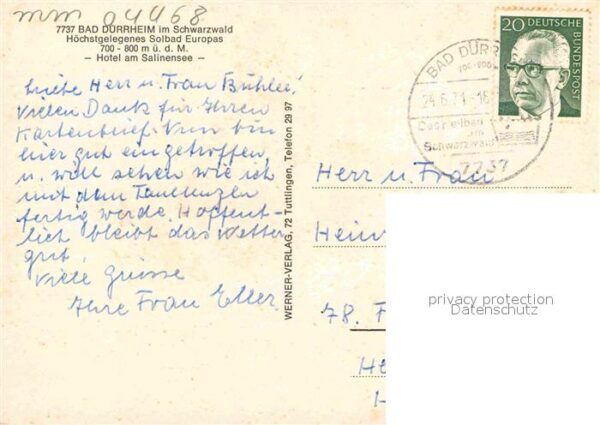 mm 04468
7737 BAD DÜRRHEIM im Schwarzwald
Höchstgelegenes Solbad Europas
700 - 800 m ü. d. M.
— Hotel am Salinensee —
Liebe Herr u. Frau Bühler!
Vielen Dank für Ihren
Kartenbrief. Nun bin
hier gut eingetroffen,
u. will sehen wie ich
mit dem
fertig werde. Hoffent-
lich bleibt das Wetter
gut.
Viele Grüsse
Ihre Frau Eller.
WERNER-VERLAG, 72 Tuttlingen, Telefon 29 97
20 DEUTSCHE
BUNDESPOST
BAD DÜRRH
24.6.71-16
Das Heilbad
im
Schwarzwald
7737
Herr u. Frau
Hein
78. F
He
privacy protection
Datenschutz